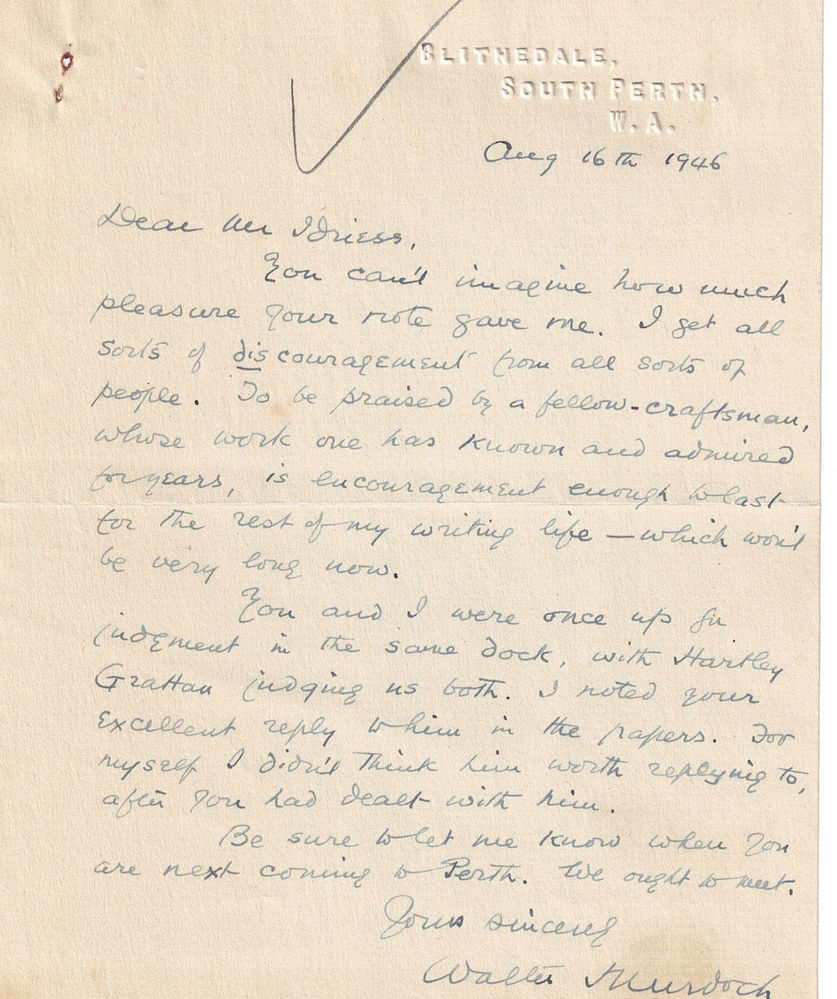 BLITHEDALE,
SOUTH PERTH.
W.A.
Aug 16th 1946
Dear Mr Idriess,
You can't imagine how much
pleasure your note gave me. I get all
sorts of discouragement from all sorts of
people. To be praised by a fellow-craftsman,
whose work one has known and admired
for years, is encouragement enough to last
for the rest of my writing life — which won't
be very long now.
You and I were once up for
judgment in the same dock, with Hartley
Grattan judging us both. I noted your
excellent reply to him in the papers. For
myself I didn't think him worth replying to,
after you had dealt with him.
Be sure to let me know when you
are next coming to Perth. We ought to meet.
Yours sincerely
Walter Murdoch